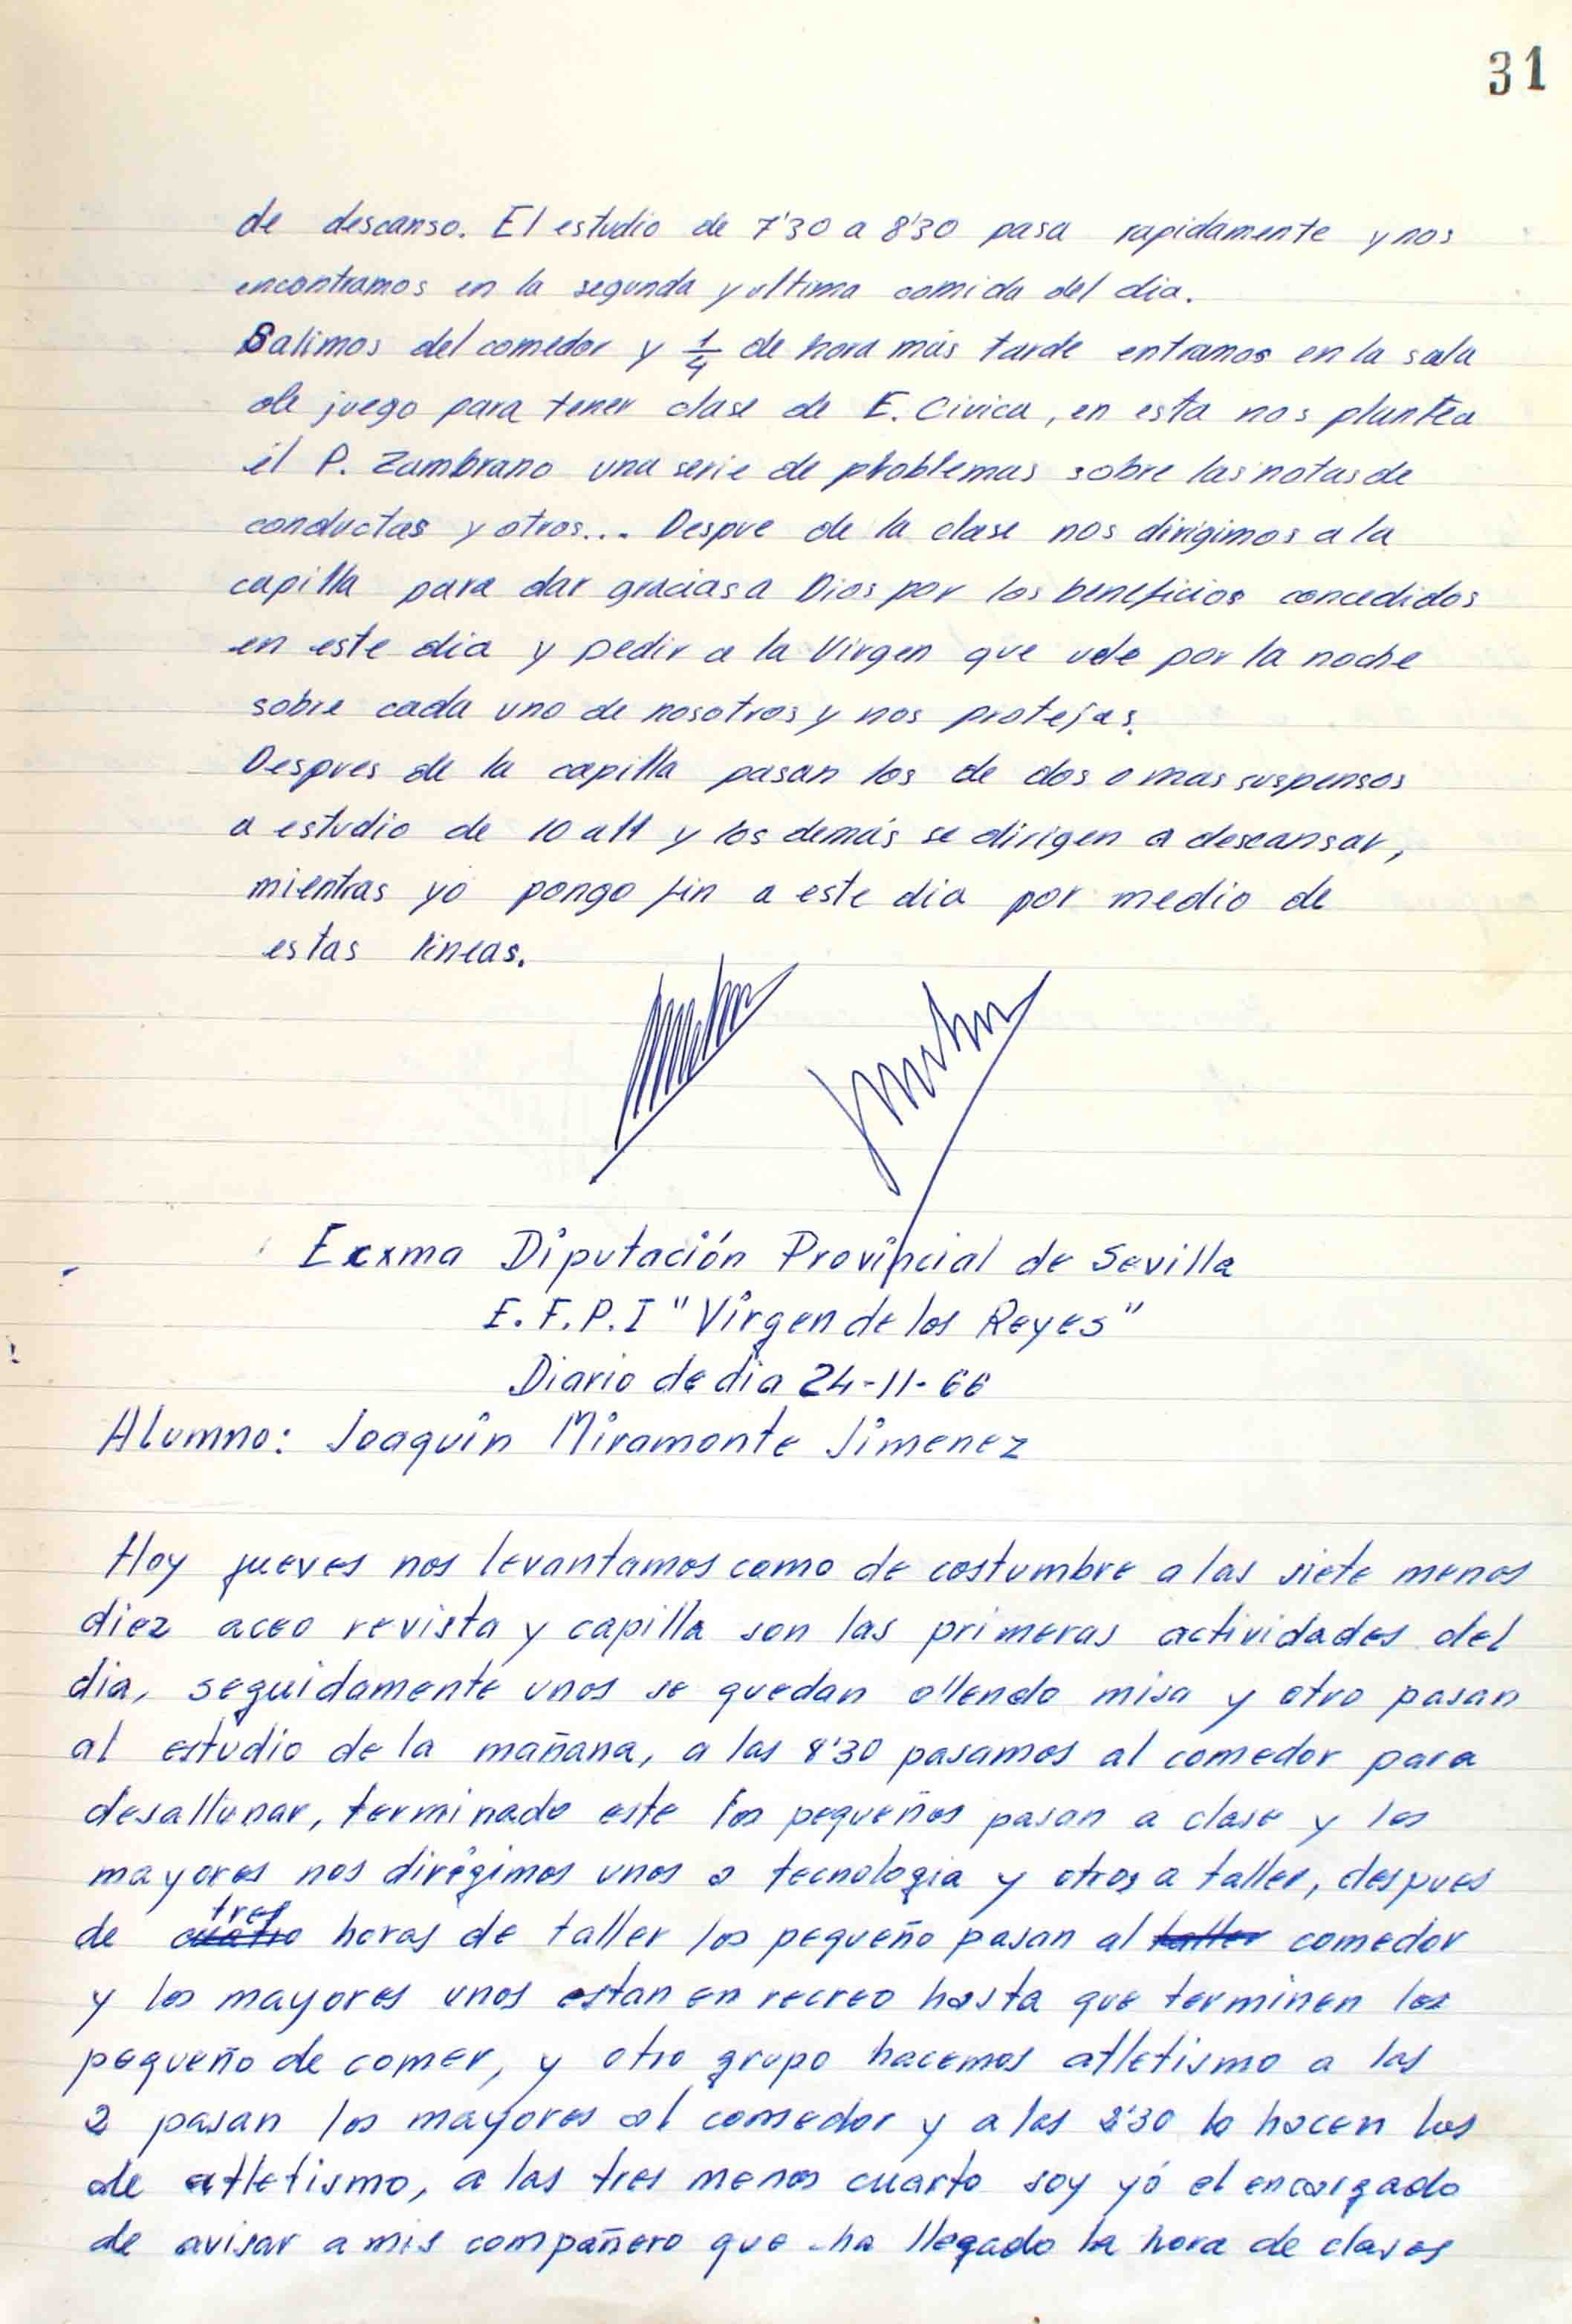 31
de descanso. El estudio de 7'30 a 8'30 pasa rapidamente y nos
encontramos en la segunda y ultima comida del dia.
Salimos del comedor y 1/4 de hora más tarde entramos en la sala
de juego para tener clase de E. Civica, en esta nos plantea
él P. Zambrano una serie de problemas sobre las notas de
conductas y otros... Despue de la clase nos dirigimos a la
capilla para dar gracias a Dios por los beneficios concedidos
en este dia y pedir a la Virgen que vele por la noche
sobre cada uno de nosotros y nos protejas.
Despues de la capilla pasan los de dos o mas suspensos
a estudio de 10 a 11 y los demás se dirigen a descansar,
mientras yo pongo fin a este dia por medio de
estas lineas.
Ecxma Diputación Provincial de Sevilla
E.F.P.I "Virgen de los Reyes"
Diario de dia 24-11-66
Alumno: Joaquin Miramonte Jimenez
Hoy jueves nos levantamos como de costumbre a las siete menos
diez aceo revista y capilla son las primeras actividades del
dia, seguidamente unos se quedan ollendo misa y otro pasan
al estudio de la mañana, a las 8'30 pasamos al comedor para
desallunar, terminado este los pequeños pasan a clase y los
mayores nos dirigimos unos a tecnologia y otros a taller, despues
de cuatro tres horas de taller los pequeño pasan al taller comedor
y los mayores unos estan en recreo hasta que terminen los
pequeño de comer, y otro grupo hacemos atletismo a las
2 pasan los mayores al comedor y a las 2'30 lo hacen los
de atletismo, a las tres menos cuarto soy yó el encargado
de avisar a mis compañero que ha llegado la hora de clases